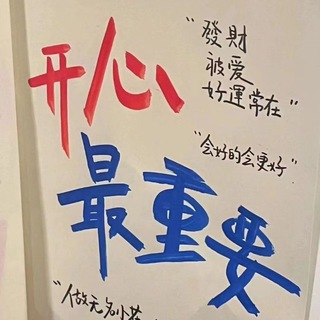 开心
最重要
"發財
被爱
好運常在"
"会好的会更好"
"人做无名小花